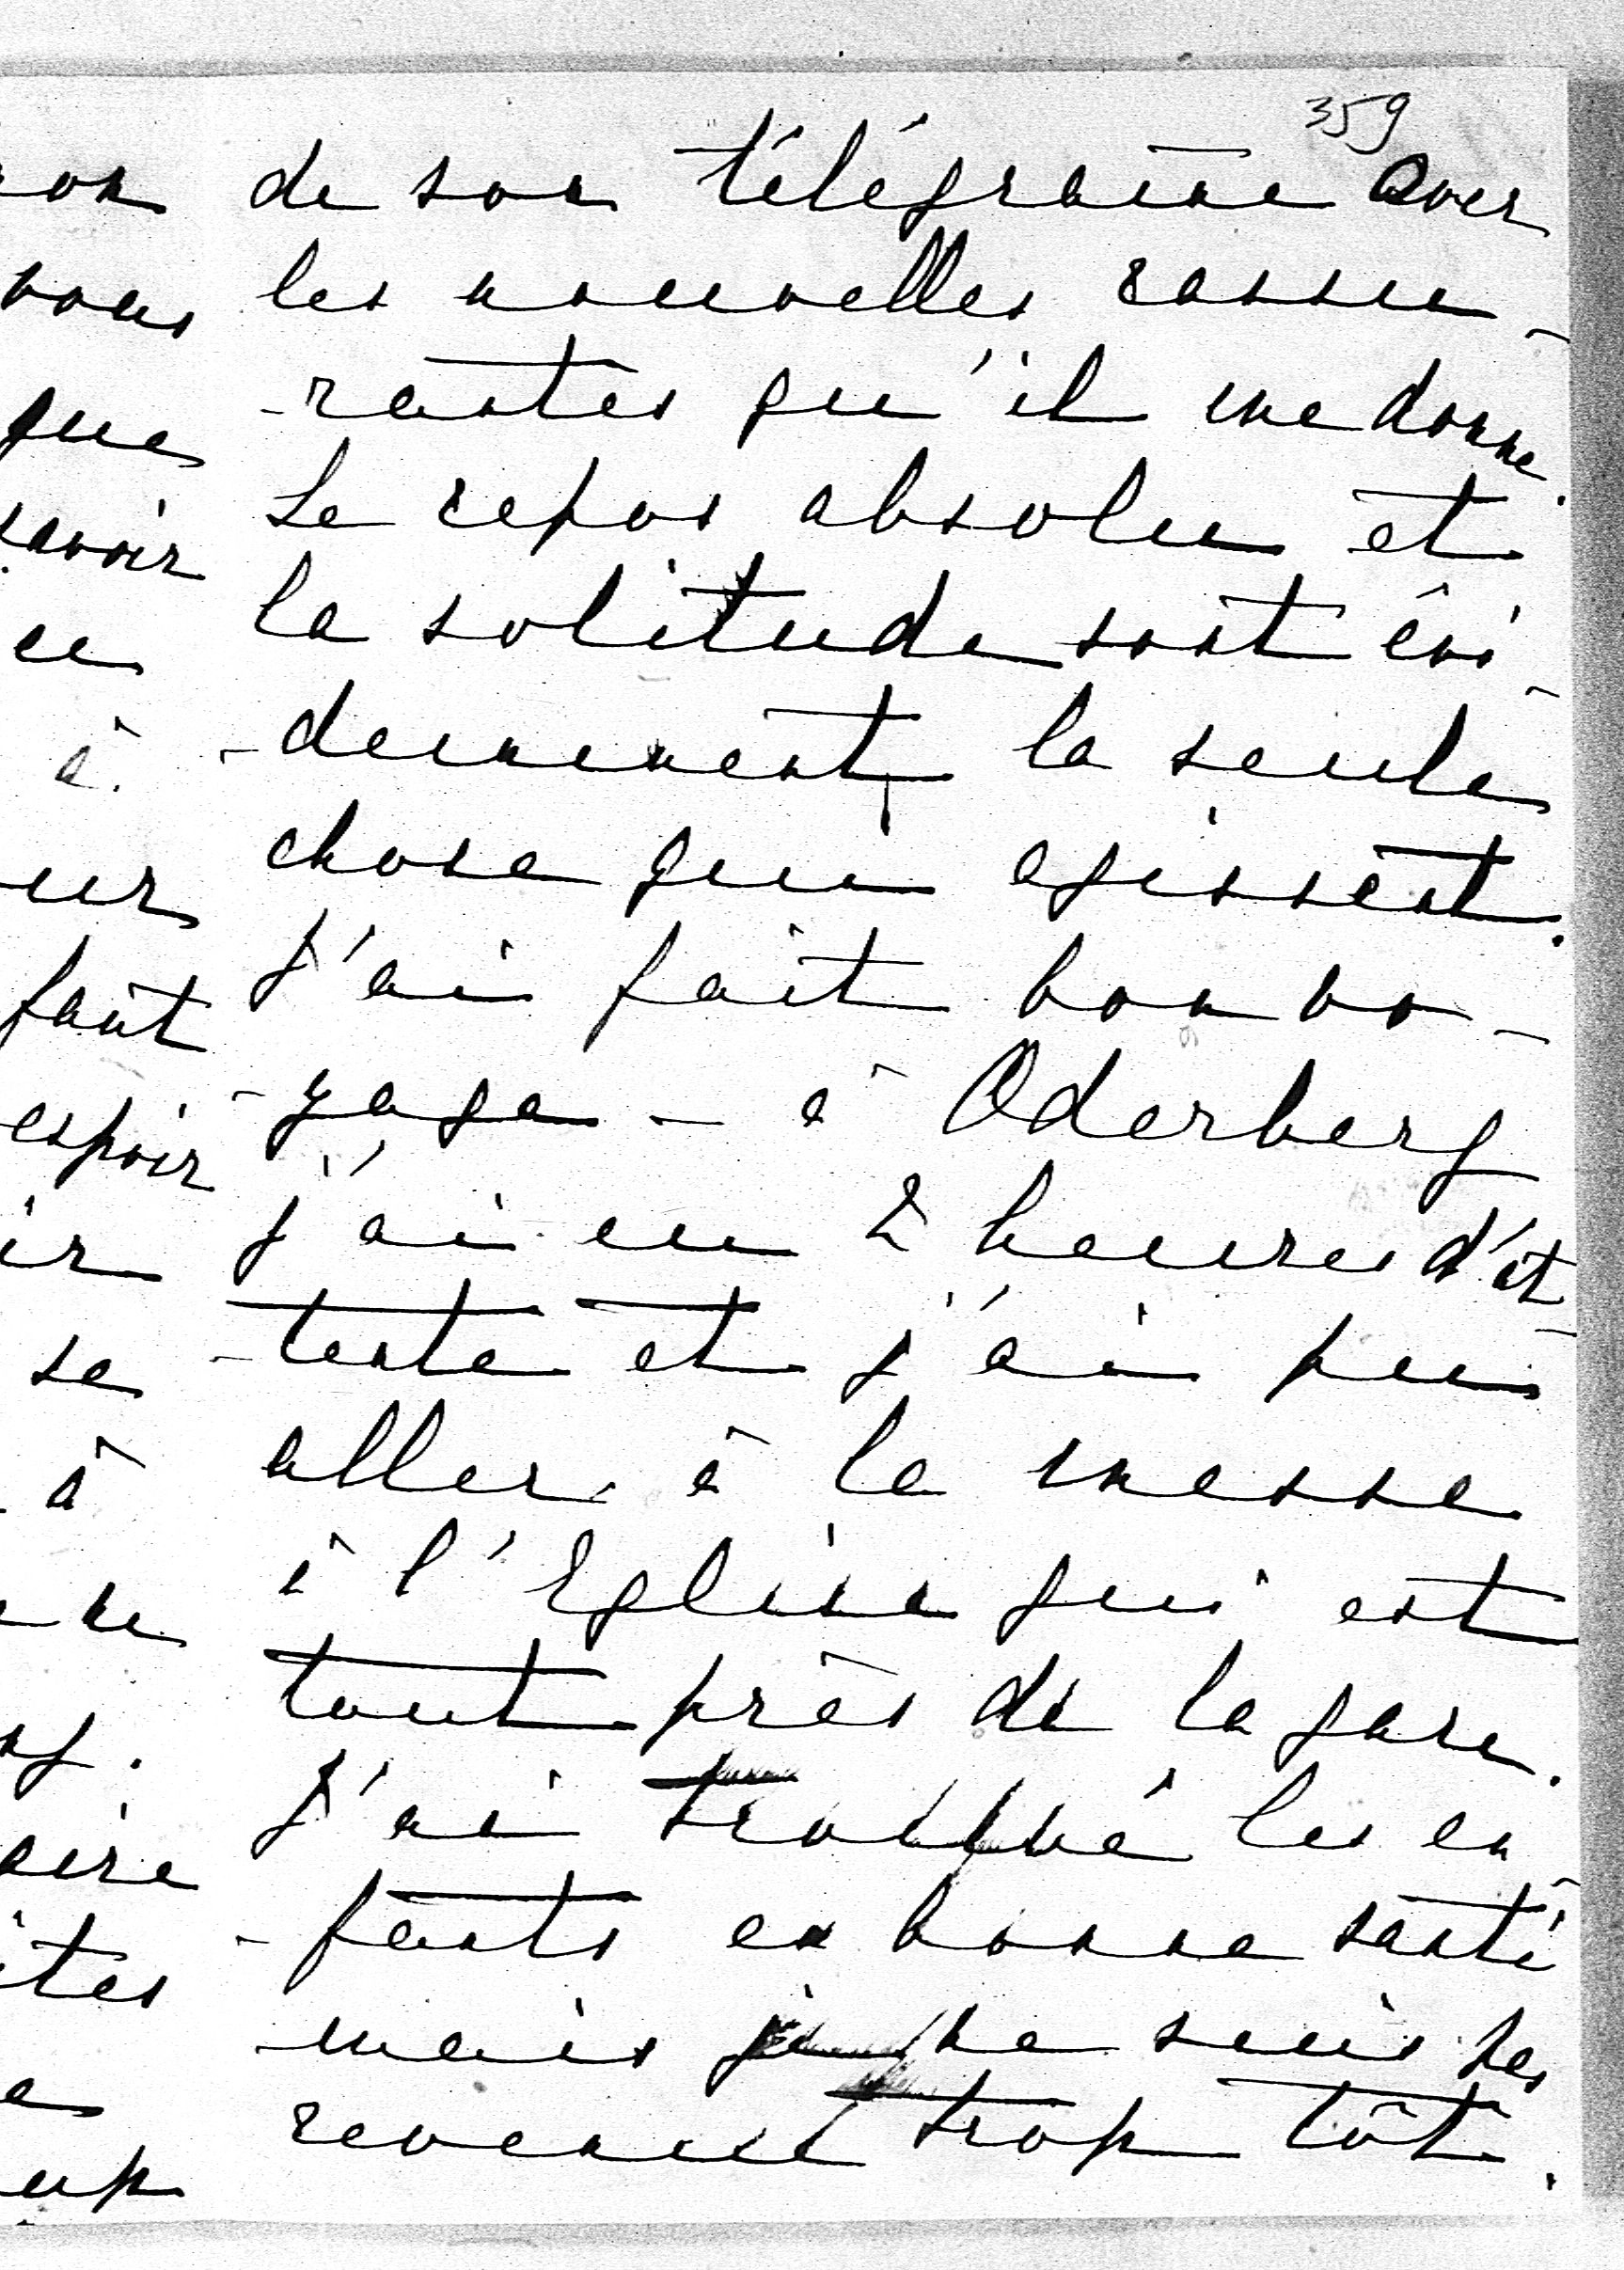 359
de son télégramme avec
les nouvelles rassu-
-rantes qu'il me donne.
Le repos absolu et
la solitude sont évi-
-demment la seule
chose qui agissent.
J'ai fait bon vo-
-yage - à Oderberg
j'ai eu 2 heures d'at-
-tente et j'ai pu
aller à la messe
à l'Eglise qui est
tout près de la gare.
J'ai trouvé les en-
-fants en bonne santé
mais je ne suis pas
revenue trop tôt.
vous
que
savoir
ce
à
faut
espoir
se
à